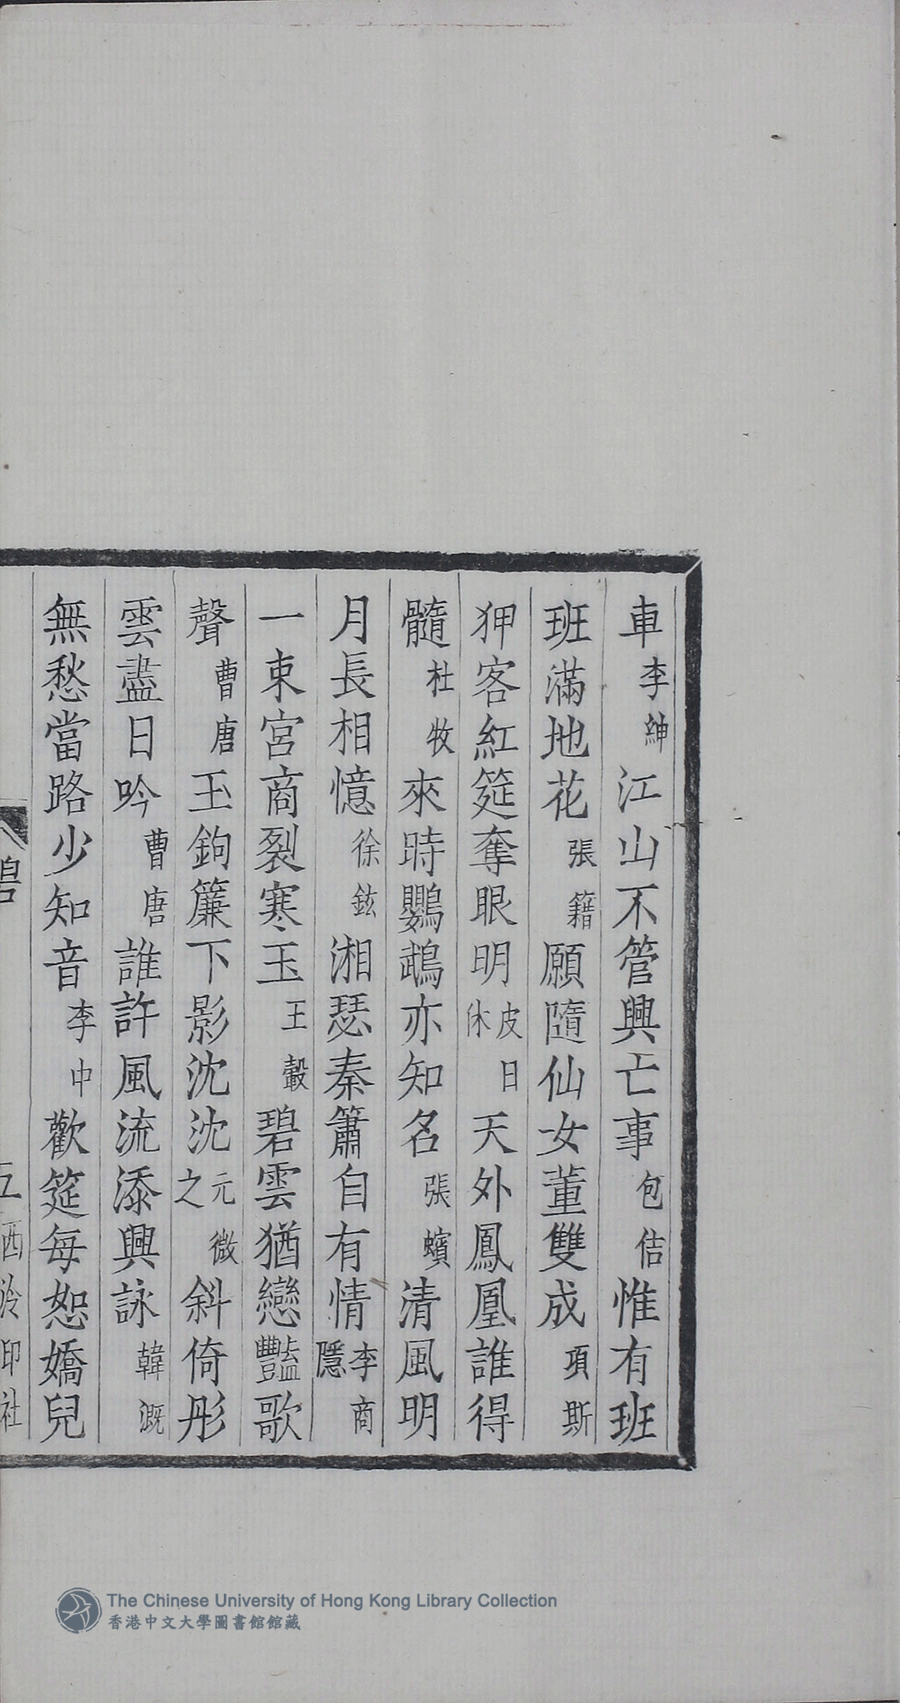 車李紳江山不管興亡事包佶惟有班
班滿地花張籍願隨仙女董雙成項斯
狎客紅筵奪眼明皮日休天外鳳凰誰得
髓杜牧來時鸚鵡亦知名張蠙清風明
月長相憶徐鉉湘瑟秦簫自有情李商隱
一束宮商裂寒玉王轂碧雲猶戀豔歌
聲曹唐玉鉤簾下影沈沈元微之斜倚彤
雲盡日吟曹唐誰許風流添興詠韓溉
無愁當路少知音李中歡筵每恕嬌兒
五 西泠印社
The Chinese University of Hong Kong Library Collection
香港中文大學圖書館館藏